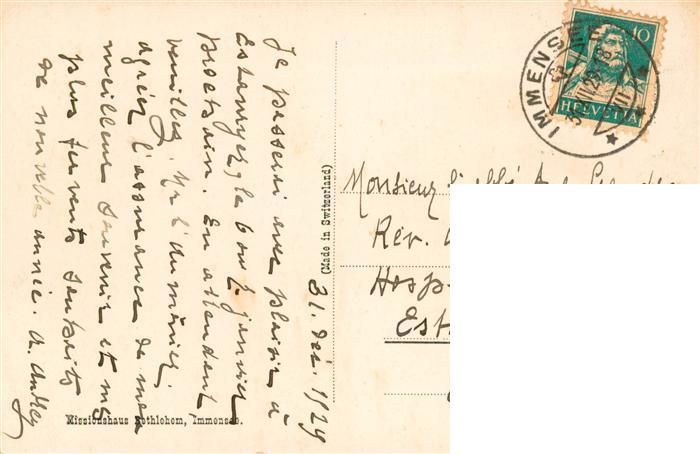 31. Déc. 1929
Je passerai avec plaisir à
Estavayer, le 6 ou 7 janvier
prochain. En attendant,
veuillez, M. l'aumônier,
agréer l'assurance de mon
meilleur souvenir et mes
plus fervents souhaits
de nouvelle année. A. Andrey
Missionshaus Bethlehem, Immensee.
(Made in Switzerland)
IMMENSEE
10
HELVETIA
Monsieur l'abbé
Rév.
Hosp
Est